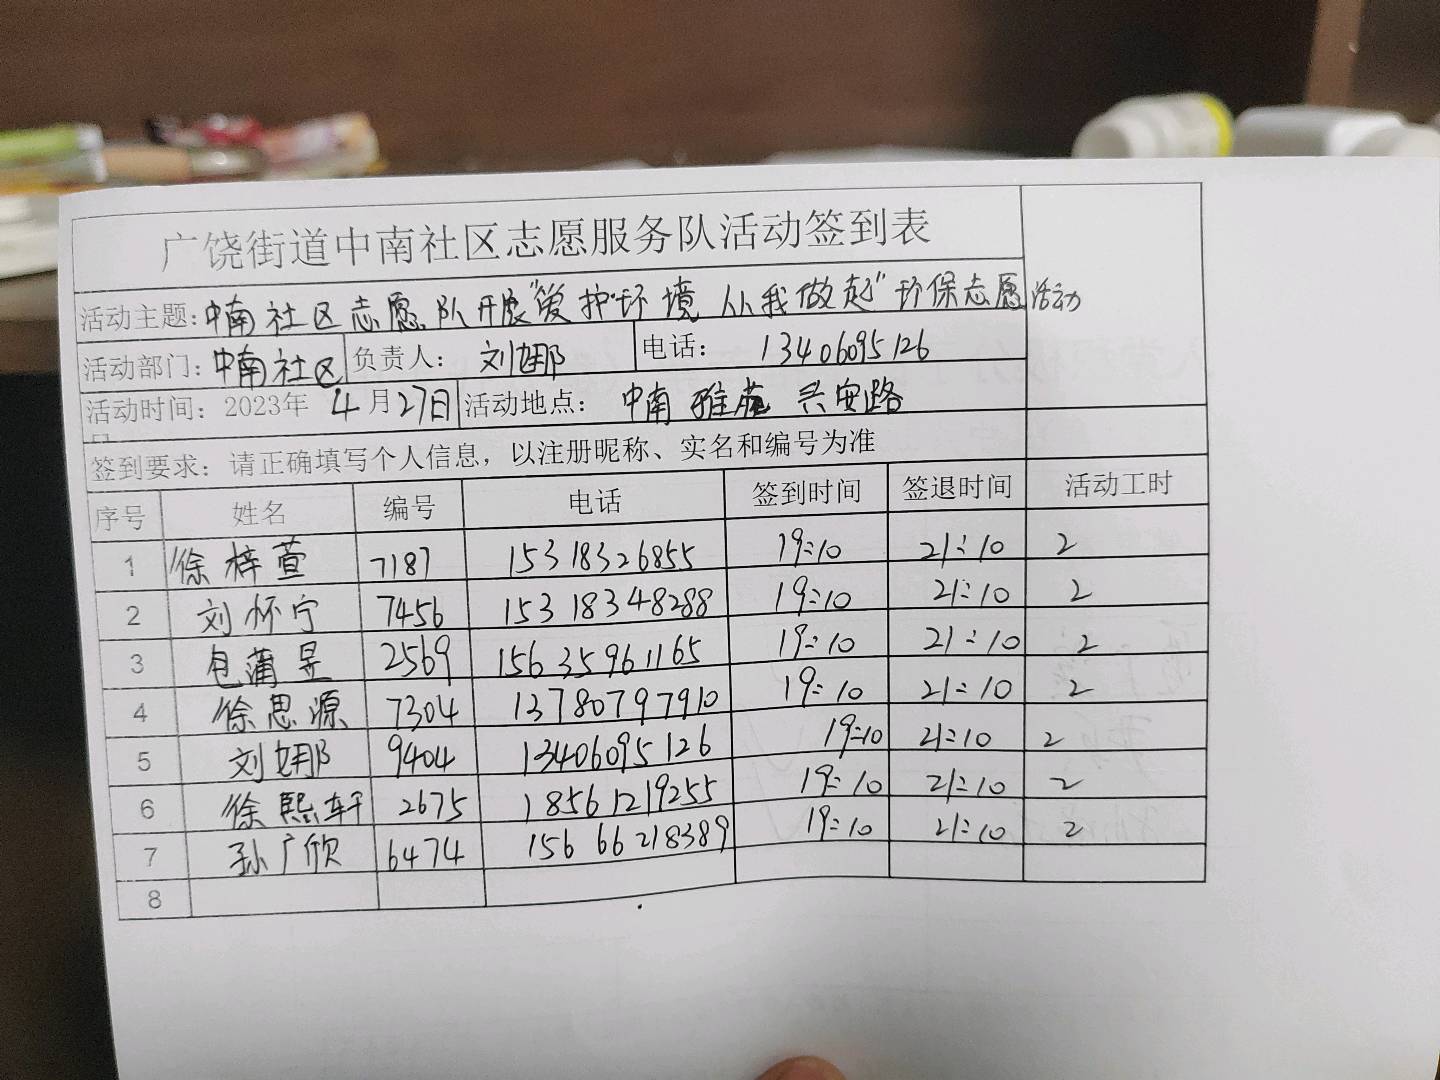 广饶街道中南社区志愿服务队活动签到表
活动主题:中南社区志愿队开展"爱护环境 从我做起"环保志愿活动
活动部门:中南社区 负责人: 刘娜 电话: 13406095126
活动时间: 2023年 4月27日 活动地点: 中南雅苑 兴安路
签到要求: 请正确填写个人信息, 以注册昵称、实名和编号为准
序号 姓名 编号 电话 签到时间 签退时间 活动工时
1 徐梓萱 7187 15318326855 19:10 21:10 2
2 刘怀宁 7456 15318348288 19:10 21:10 2
3 包蒲昱 2569 15635961165 19:10 21:10 2
4 徐思源 7304 13780797910 19:10 21:10 2
5 刘娜 9404 13406095126 19:10 21:10 2
6 徐熙轩 2675 18561219255 19:10 21:10 2
7 孙广欣 6474 15666218389 19:10 21:10 2
8